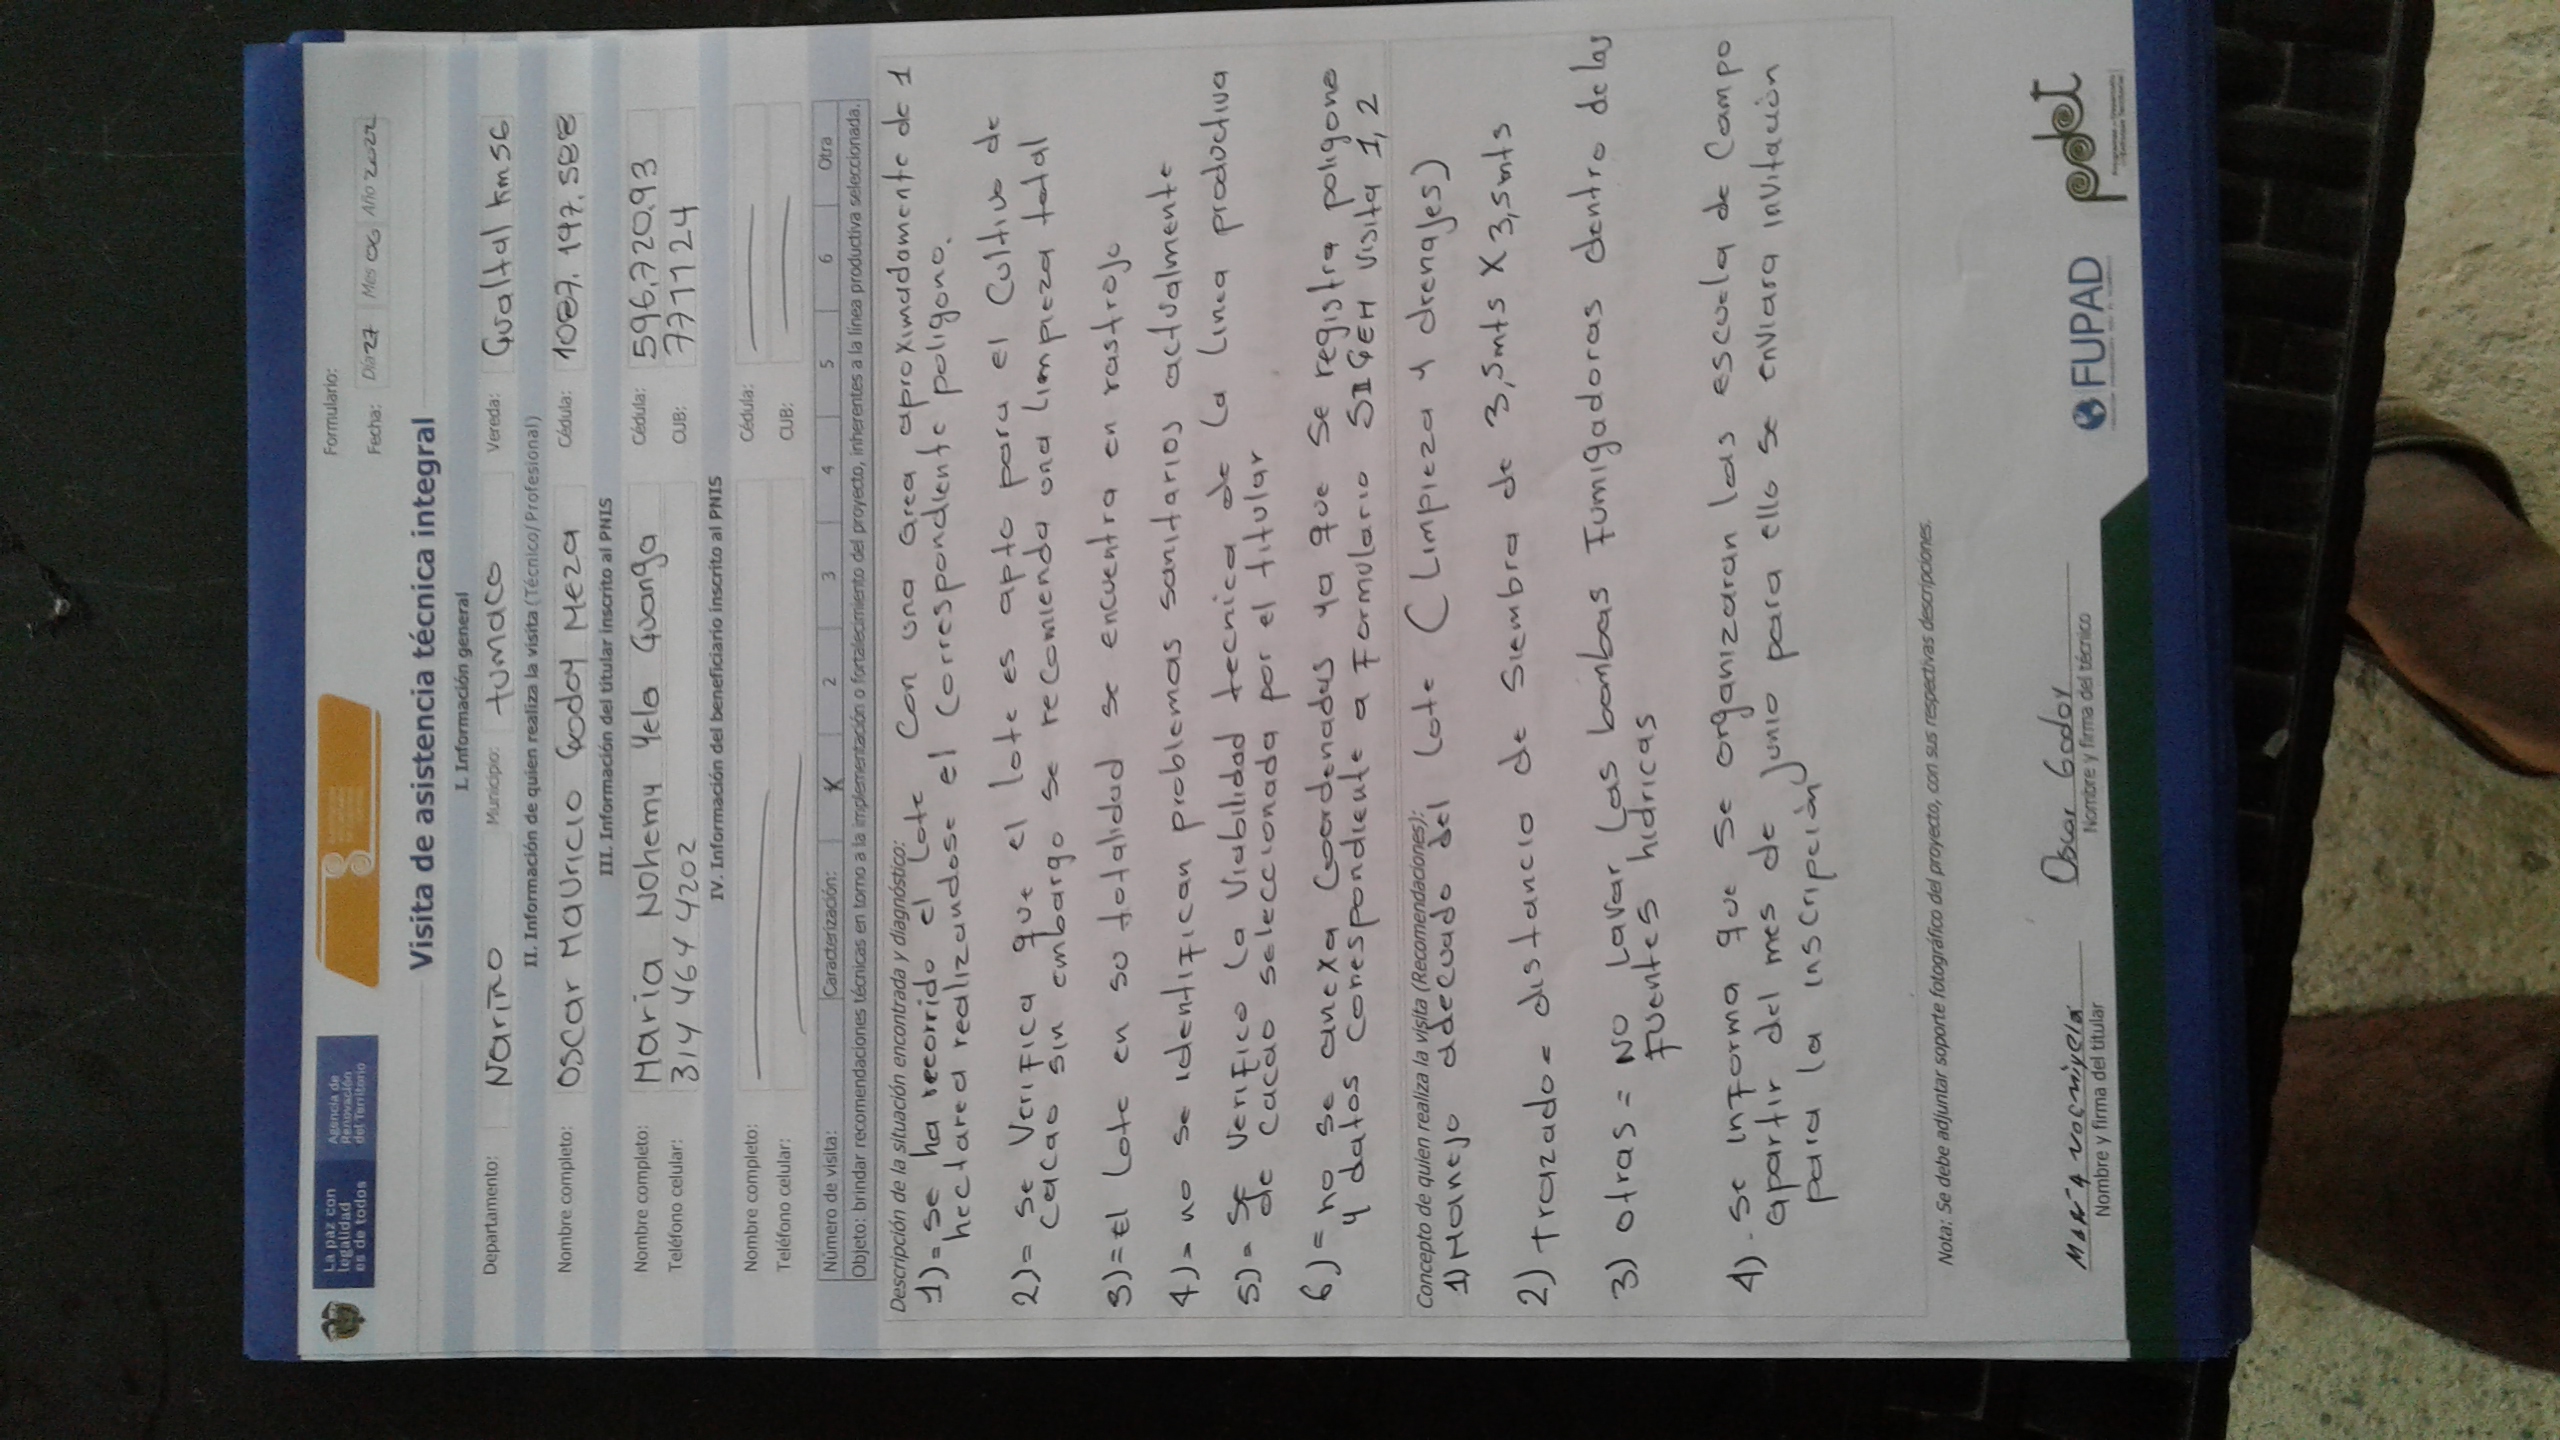 La paz con
legalidad
es de todos
Agencia de
Renovación
del Territorio
Formulario:
Fecha: Día 27 Mes 06 Año 2022
Visita de asistencia técnica integral
I. Información general
Departamento: Nariño Municipio: tumaco Vereda: Gualtal km 56
II. Información de quien realiza la visita (Técnico/ Profesional)
Nombre completo: Oscar Mauricio Godoy Meza Cédula: 1087.197.588
III. Información del titular inscrito al PNIS
Nombre completo: Maria Nohemy Yela Guanga Cédula: 596,720,93
Teléfono celular: 314 464 4202 CUB: 7771124
IV. Información del beneficiario inscrito al PNIS
Nombre completo: Cédula:
Teléfono celular: CUB:
Número de visita: Caracterización: X 2 3 4 5 6 Otra
Objeto: brindar recomendaciones técnicas en torno a la implementación o fortalecimiento del proyecto, inherentes a la línea productiva seleccionada.
Descripción de la situación encontrada y diagnóstico:
1) = se ha recorrido el Lote Con una area aproximadamente de 1
hectarea realizandose el correspondiente poligono.
2) = se Verifica que el lote es apto para el Cultivo de
cacao sin embargo se recomienda una limpieza total
3) = El Lote en su totalidad se encuentra en rastrojo
4) = no se identifican problemas sanitarios actualmente
5) = Se Verifico La Viabilidad tecnica de La Linea productiva
de cacao seleccionada por el titular
6) = no se anexa Coordenadas ya que se registra poligono
y datos correspondiente a Formulario SIGEH visita 1, 2
Concepto de quien realiza la visita (Recomendaciones):
1) Manejo adecuado del Lote (Limpieza y drenajes)
2) trazado = distancia de siembra de 3,5mts X 3,5mts
3) otras = NO Lavar Las bombas Fumigadoras dentro de las
Fuentes hidricas
4) - se informa que se organizaran las escuela de Campo
apartir del mes de Junio para ello se enviara invitación
para la inscripción
Nota: Se debe adjuntar soporte fotográfico del proyecto, con sus respectivas descripciones.
Oscar Godoy
Nombre y firma del titular
Nombre y firma del técnico
FUPAD
pdet